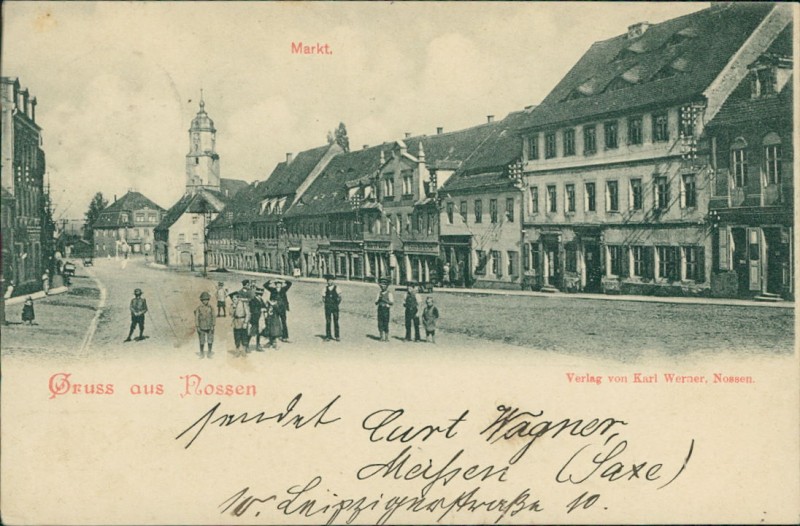 Markt.
Gruss aus Nossen
Verlag von Karl Werner, Nossen.
sendet Curt Wagner,
Meißen (Saxe)
10. Leipzigerstraße 10.